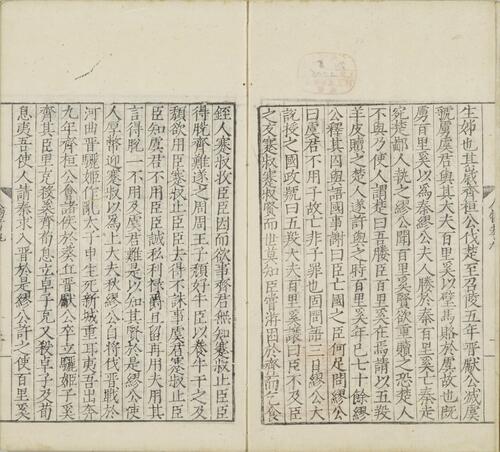 生姊也其歲齊桓公伐楚至召陵五年晉獻公滅虞
虢虜虞君與其大夫百里奚以璧馬賂於虞故也既
虜百里奚以為秦繆公夫人媵於秦百里奚亡秦走
宛楚鄙人執之繆公聞百里奚賢欲重贖之恐楚人
不與乃使人謂楚曰吾媵臣百里奚在焉請以五羖
羊皮贖之楚人遂許與之時百里奚年已七十餘繆
公釋其囚與語國事謝曰臣亡國之臣何足問繆公
曰虞君不用子故亡非子罪也固問語三日繆公大
說授之國政號曰五羖大夫百里奚讓曰臣不及臣
之友蹇叔蹇叔賢而世莫知臣常游困於齊而乞食
銍人蹇叔收臣臣因而欲事齊君無知蹇叔止臣臣
得脫齊難遂之周周王子頹好牛臣以養牛干之及
頹欲用臣蹇叔止臣臣去得不誅事虞君蹇叔止臣
臣知虞君不用臣臣誠私利祿爵且留再用夫用其
言得脫一不用及虞君難是以知其賢於是繆公使
人厚幣迎蹇叔以為上大夫秋繆公自將伐晉戰於
河曲晉驪姬作亂太子申生死新城重耳夷吾出奔
九年齊桓公會諸侯於葵丘晉獻公卒立驪姬子奚
齊其臣里克殺奚齊荀息立卓子克又殺卓子及荀
息夷吾使人請秦求入晉於是繆公許之使百里奚